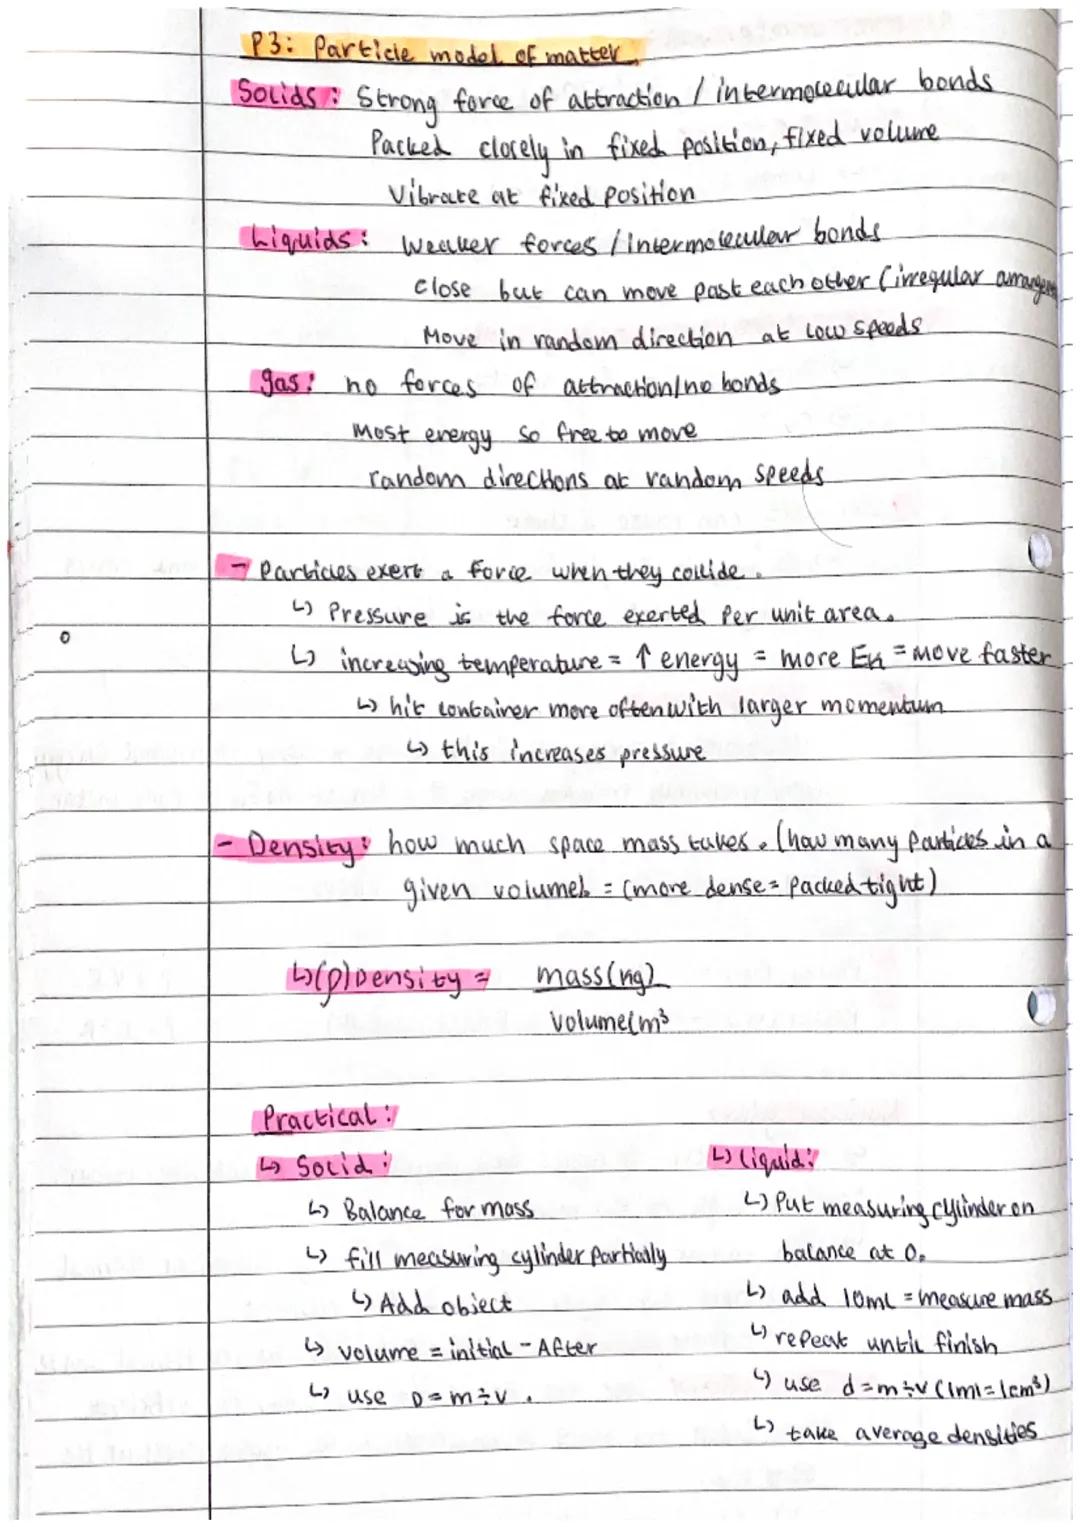 P3: Particle model of matter.
Solids: Strong force of attraction / intermolecular bonds
Packed closely in fixed position, fixed volume
Vibrate at fixed position
Liquids: Weaker forces / intermolecular bonds
Close but can move past each other (irregular
Move in random direction at low speeds
gas: no forces of attraction/no bonds
Most energy so free to move
random directions at random speeds
- Particles exert a force when they collide.
↳ Pressure is the force exerted per unit area.
↳ increasing temperature = ↑ energy = more Ek = move faster
↳ hit container more often with larger momentum
↳ this increases pressure
- Density: how much space mass takes. (how many particles in a
given volume = (more dense = packed tight)
↳ (ρ) Density = mass(kg)
volume(m³
Practical:
↳ Solid:
↳ Balance for mass
↳ fill measuring cylinder partially
↳ Add object
↳ volume = initial - After
↳ use D = m ÷ v.
↳ liquid:
↳ Put measuring cylinder on
balance at 0.
↳ add 10ml = measure mass
↳ repeat until finish
↳ use d = m ÷ v (1ml = 1cm³)
↳ take average densities